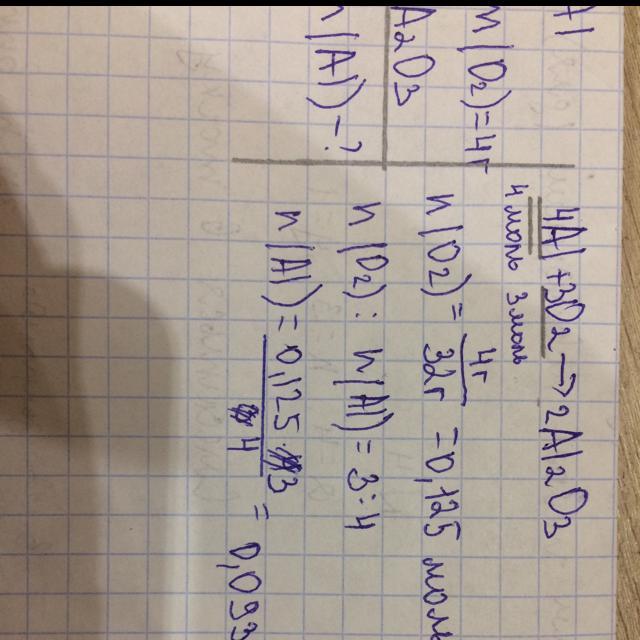 Al
m(O2)=4г
A2O3
n(Al)-?
4Al+3O2→2Al2O3
4 моль 3 моль
n(O2)= 4г/32г =0,125 моль
n(O2): n(Al)=3:4
n(Al)= 0,125·3/4 = 0,093